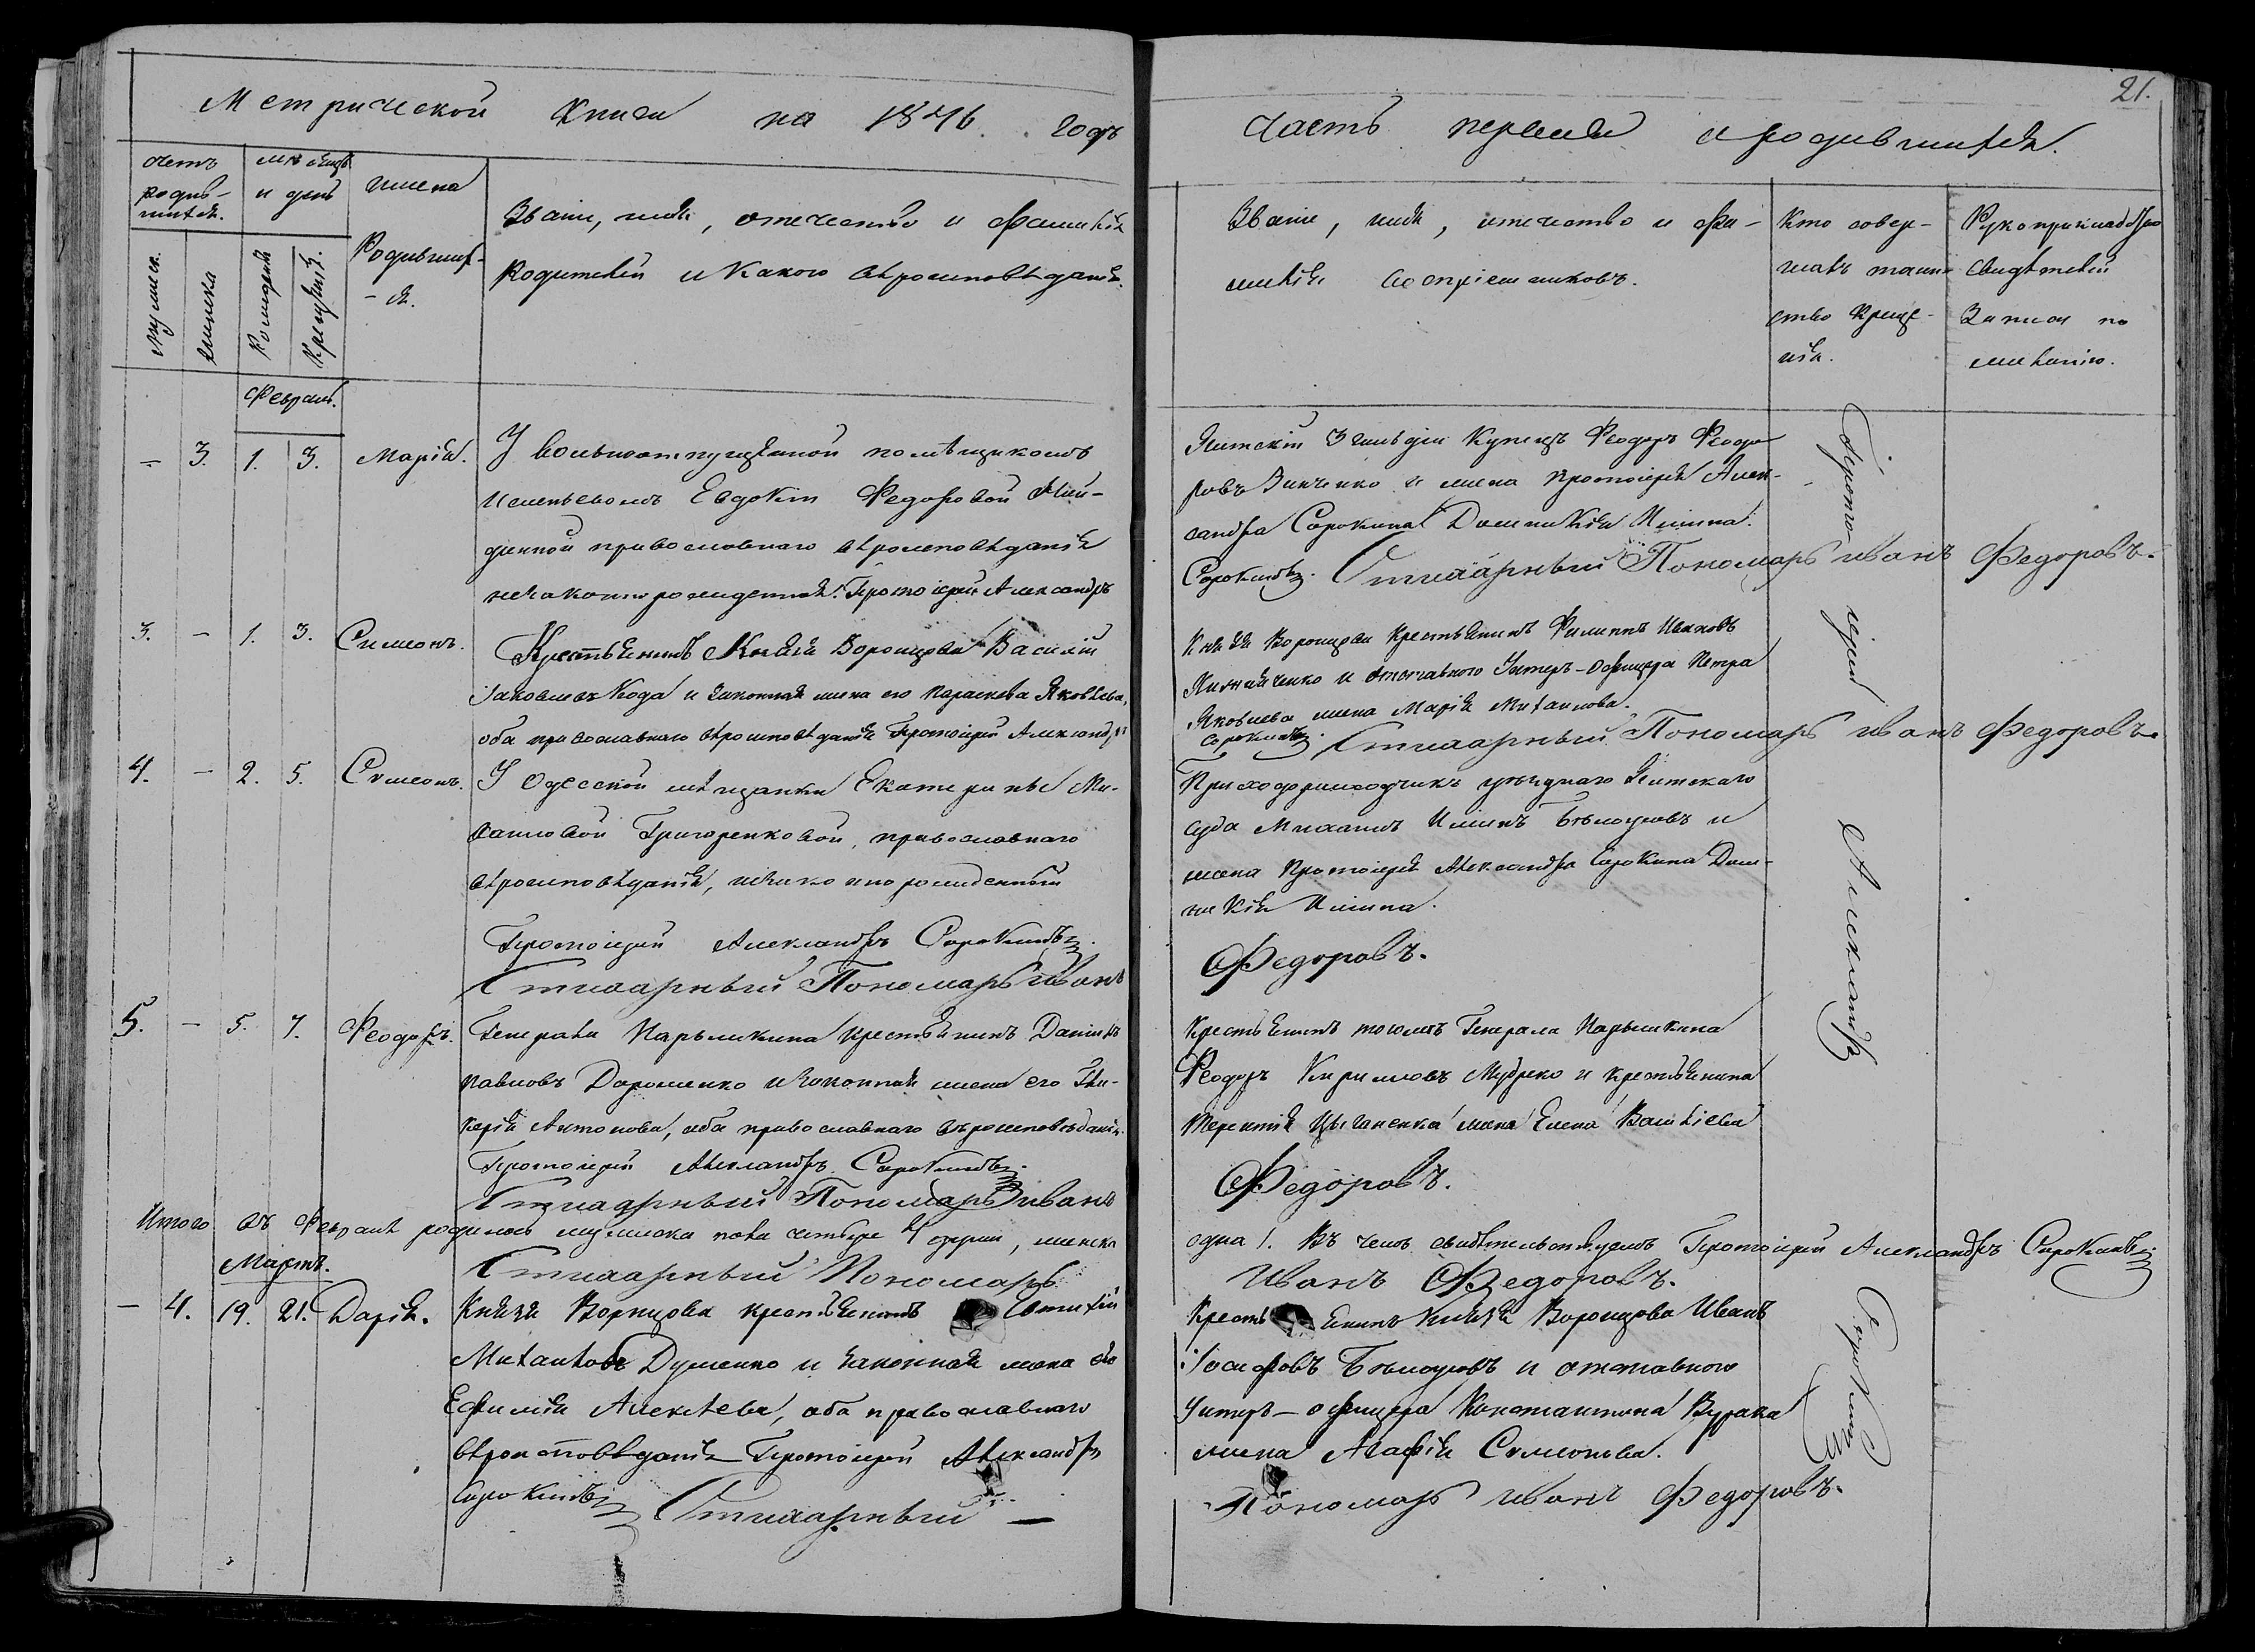 Метрической книги на 1846 годъ
счетъ родив-шихся.
мѣсяцъ и день
имена Родивших-ся.
Званіе, имя, отчество и фамилія
Родителей и какого вѣроисповѣданія.
мужеск.
женска
Рожденія
Крещенія.
Февраль.
- 3. 1. 3. Марія. У вольноотпущенной помѣщикомъ
Евдокіи Федоровой
православнаго вѣроисповѣданія
незаконнорожденная. Протоіерей Александръ
3. - 1. 3. Симеонъ. Крестьянинъ Князя Воронцова Василій
Іаковлевъ Кода и законная жена его Параскева Яковлева,
оба православнаго вѣроисповѣданія Протоіерей Александръ
4. - 2. 5. Симеонъ. У Одесской мѣщанки Екатерины Ми-
хаиловой Григоренковой, православнаго
вѣроисповѣданія, незаконнорожденный
Протоіерей Александръ Сорокинъ.
Стихарный Пономарь Иванъ
5. - 5. 7. Феодоръ. Генерала Нарышкина крестьянинъ Даніилъ
Павловъ Дорошенко и законная жена его Гли-
керія Антонова, оба православнаго вѣроисповѣданія.
Протоіерей Александръ Сорокинъ.
Стихарный Пономарь Иванъ
Итого въ Февралѣ родилось мужеска пола четыре 4 , женска
Стихарный Пономарь
Мартъ.
- 4. 19. 21. Дарія. Князя Воронцова крестьянинъ
Михаиловъ Душенко и законная жена его
Ефимія Алексѣева, оба православнаго
вѣроисповѣданія Протоіерей Александръ
Сорокинъ Стихарный —
21.
Часть первая о родившихся.
Званіе, имя, отчество и фа-
милія воспріемниковъ.
Кто совер-
шалъ таин-
ство креще-
нія.
Рукоприкладство
свидѣтелей
записи по
желанію.
Ялтскій 3 гильдіи купецъ Феодоръ Феодо
ровъ Зинченко и жена Протоіерея Алек-
сандра Сорокина Домникія Ильина.
Сорокинъ. Стихарный Пономарь Иванъ Федоровъ.
Князя Воронцова крестьянинъ Филиппъ Ивановъ
и отставного Унтеръ-офицера Петра
Яковлева жена Марія Михаилова.
Сорокинъ. Стихарный Пономарь Иванъ Федоровъ.
Приходорасходчикъ уѣзднаго Ялтскаго
суда Михаилъ Ильинъ Бѣлоусовъ и
жена Протоіерея Александра Сорокина Дом-
никія Ильина.
Федоровъ.
Крестьянинъ тогожъ Генерала Нарышкина
Феодоръ Кирилловъ Мудреко и крестьянина
Терентія Цыганенка жена Елена Василіева
Федоровъ.
одна 1. Въ чемъ свидѣтельствуемъ Протоіерей Александръ Сорокинъ
Иванъ Федоровъ.
Крестьянинъ Князя Воронцова Иванъ
Іосифовъ Бѣлоусовъ и отставного
Унтеръ-офицера Константина Бурака
жена Агафія Симеонова.
Пономарь Иванъ Федоровъ.
Протоіерей Александръ
Сорокинъ